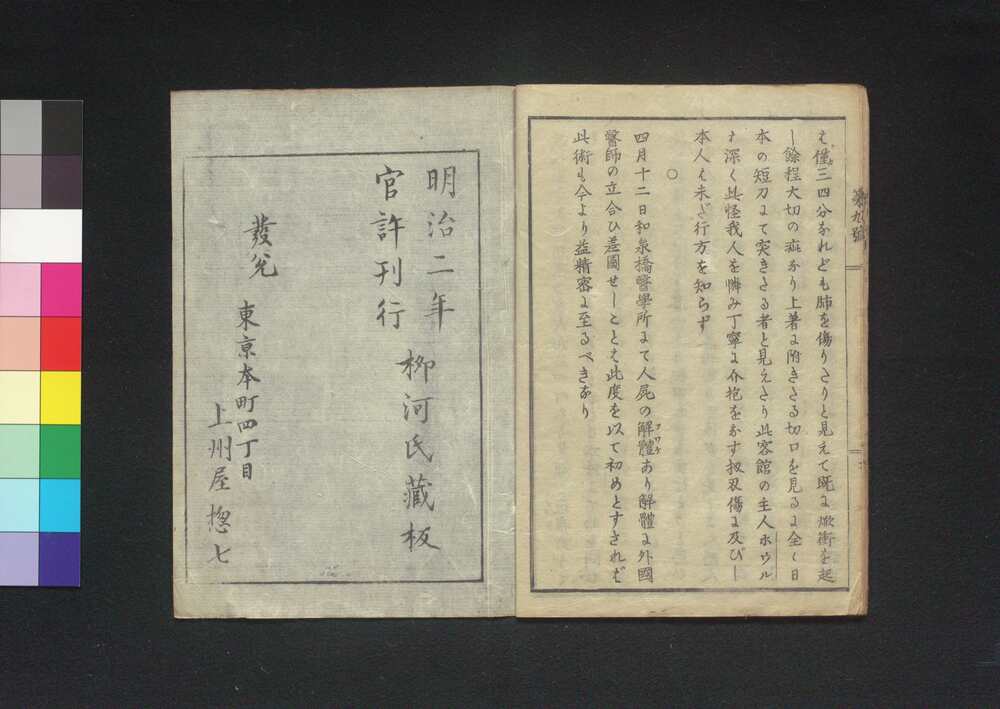 第九號
は僅三四分なれども肺を傷りたりと見えて既に焮衝を起
し餘程大切の疵なり上著に附きたる切口を見るに全く日
本の短刀にて突きたる者と見えたり此客館の主人ホウル
は深く此怪我人を憐み丁寧に介抱をなす扨刄傷に及びし
本人は未だ行方を知らず
○
四月十二日和泉橋醫學所にて人屍の解體フワケあり解體に外國
醫師の立合ひ差圖せしことは此度を以て初めとすされば
此術も今より益精密に至るべきなり
明治二年
官許刊行
柳河氏藏板
發兌
東京本町四丁目
上州屋惣七